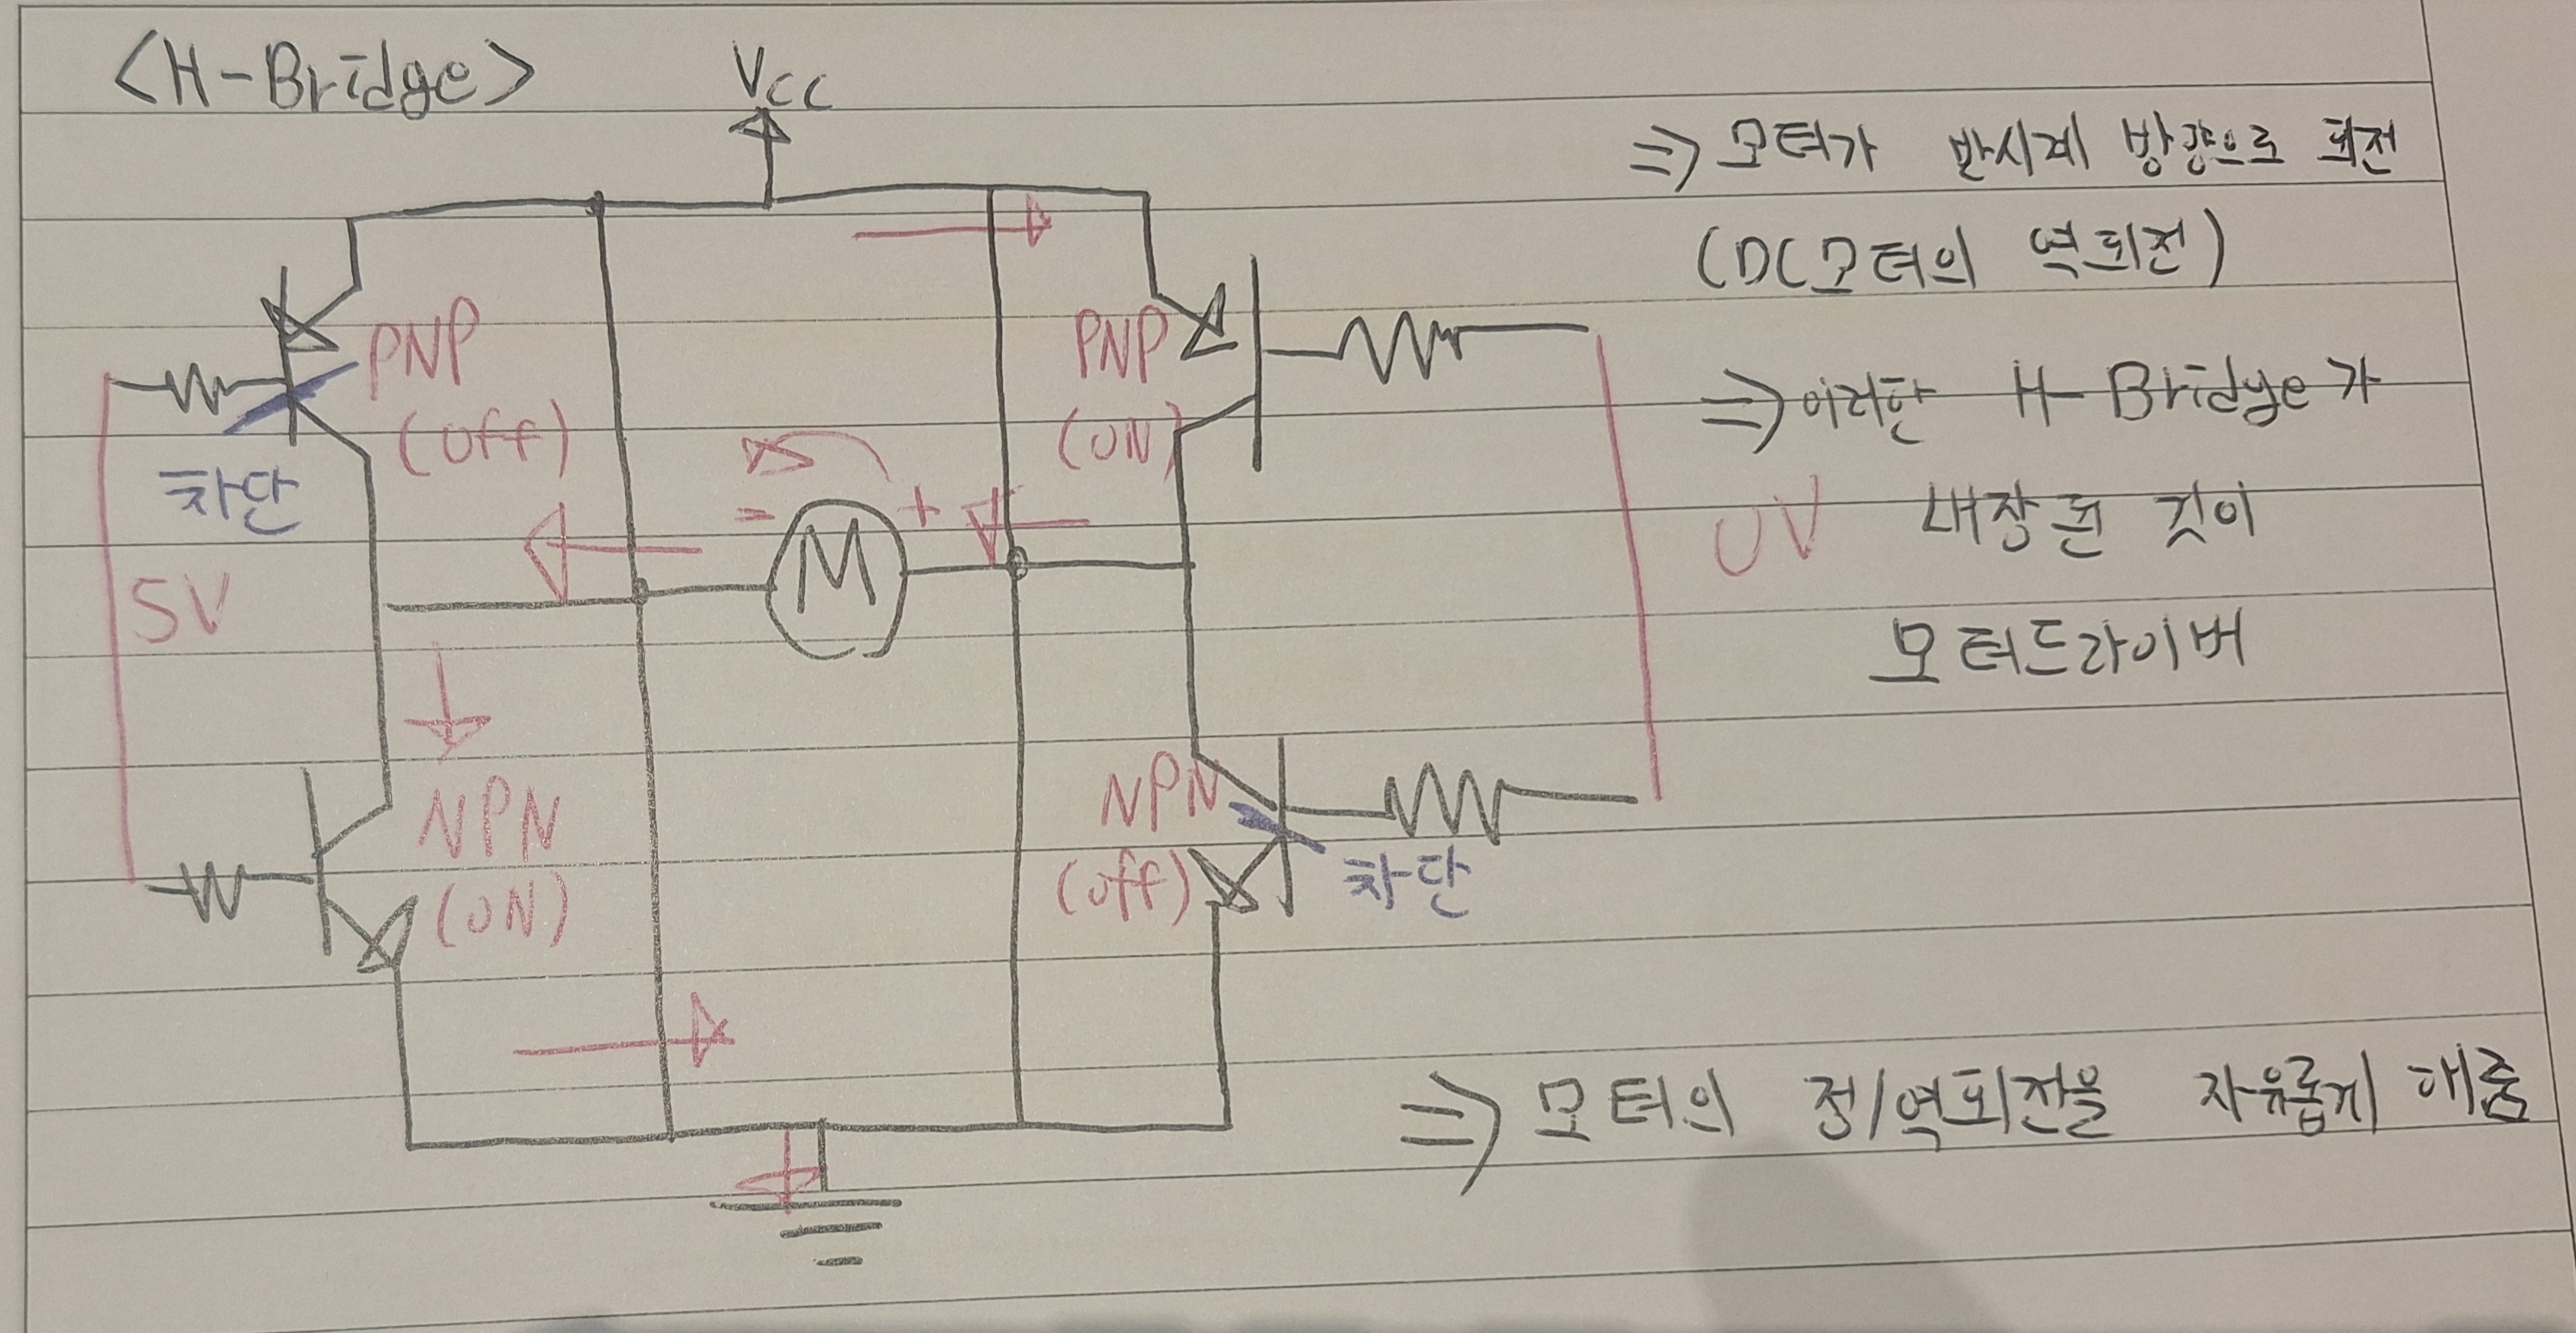 <H-Bridge>
Vcc
⇒ 모터가 반시계 방향으로 회전
(DC모터의 역회전)
PNP
(off)
차단
PNP
(ON)
⇒ 이러한 H-Bridge가
내장된 것이
모터드라이버
- M +
5V
0V
NPN
(ON)
NPN
(off)
차단
⇒ 모터의 정/역회전을 자유롭게 해줌